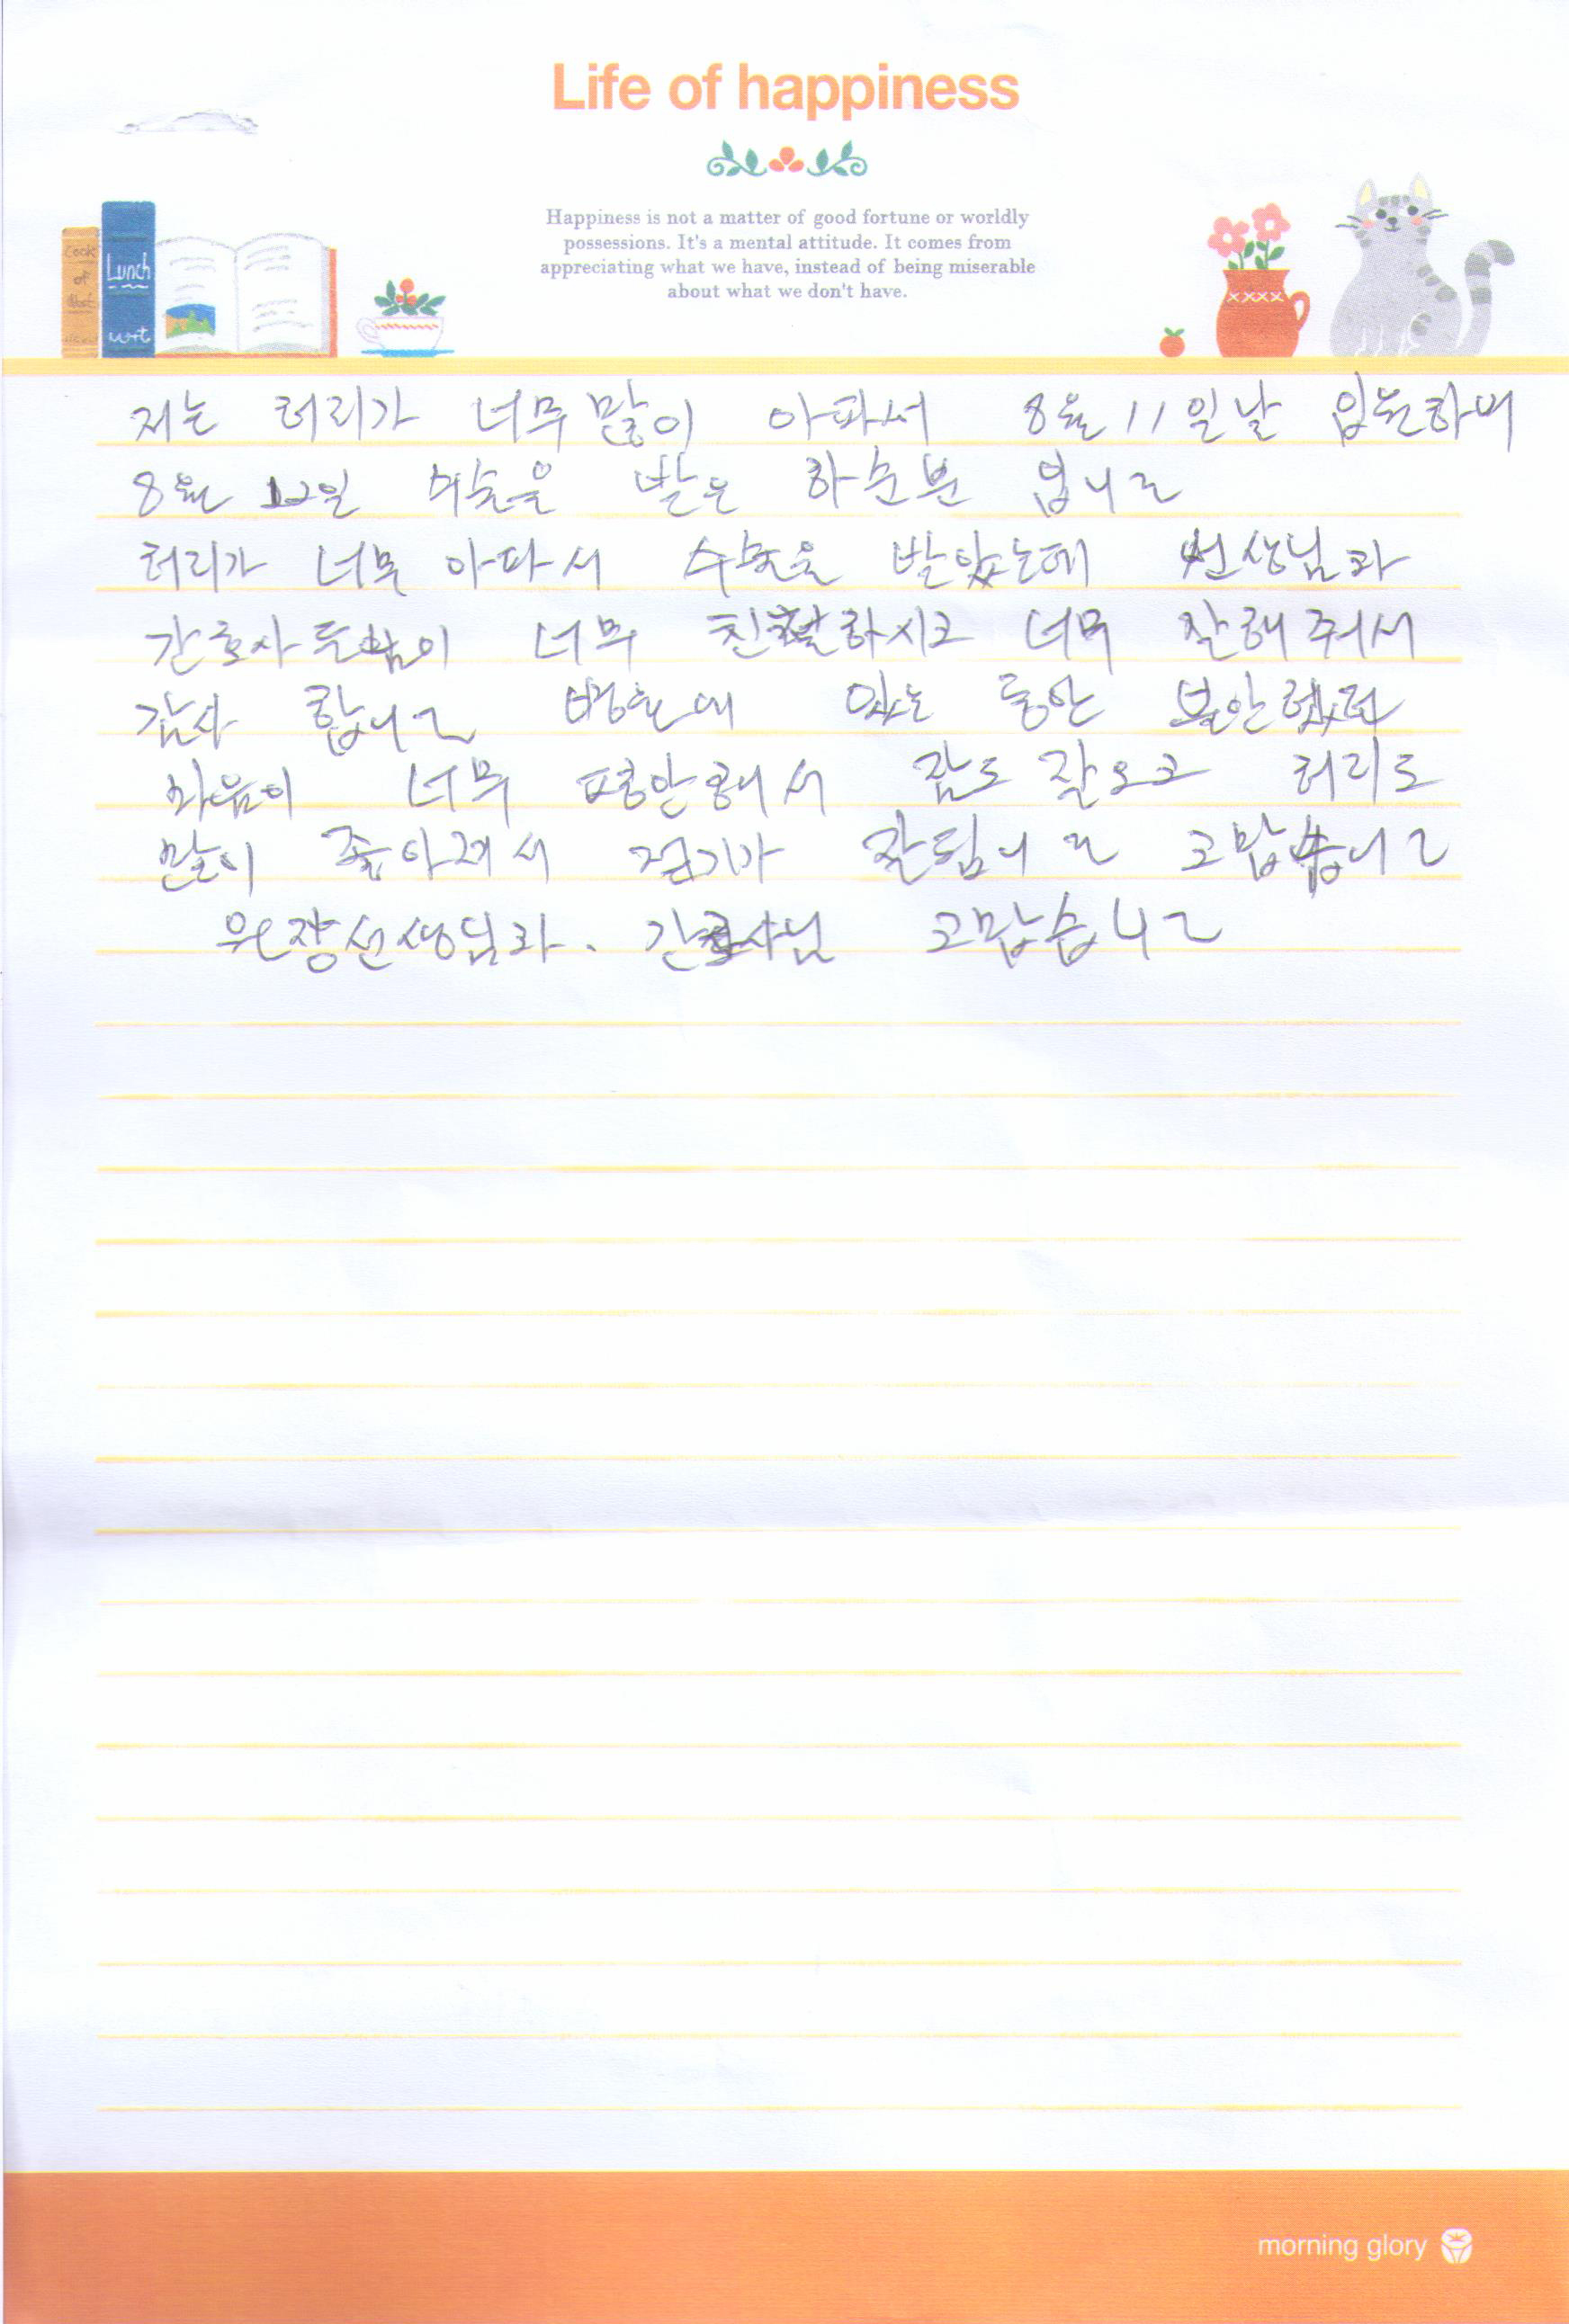 Life of happiness
Happiness is not a matter of good fortune or worldly
possessions. It's a mental attitude. It comes from
appreciating what we have, instead of being miserable
about what we don't have.
Cook
of
Lunch
저는 허리가 너무 많이 아파서 8월 11일날 입원하여
8월 12일 수술을 받은 하순분 입니다
허리가 너무 아파서 수술을 받았는데 선생님과
간호사들님이 너무 친절하시고 너무 잘해 주서서
감사 합니다 병원에 있는 동안 불안했던
마음이 너무 평안해서 잠도 잘오고 허리도
많이 좋아져서 걷기가 잘됩니다 고맙습니다
원장선생님과. 간호사님 고맙습니다
morning glory